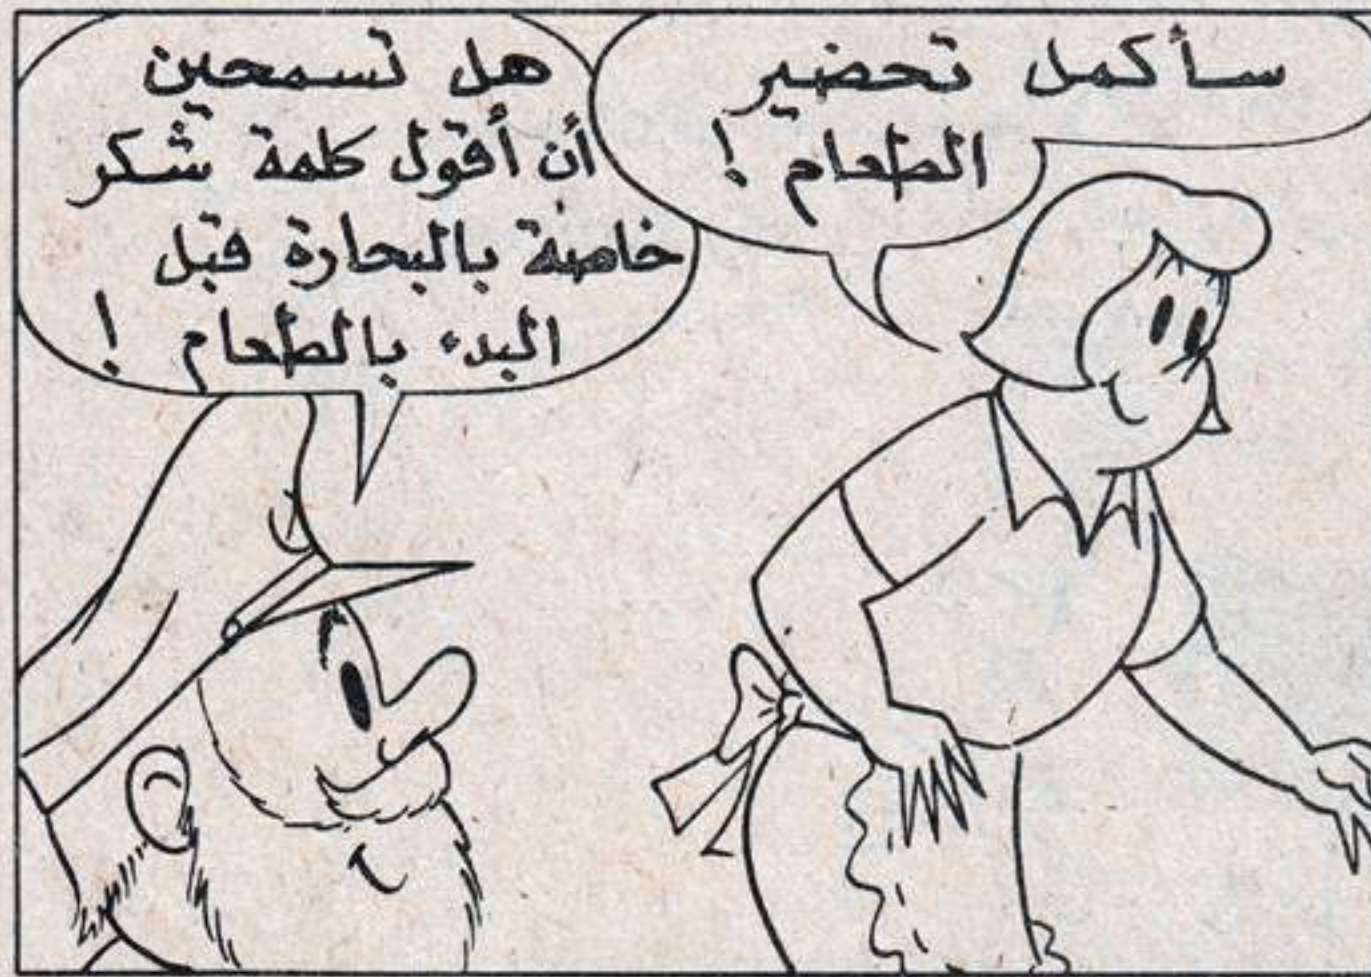 سأكمل تحضير
الطعام !
هل تسمحين
أن أقول كلمة شكر
خاصة بالبحارة قبل
البدء بالطعام !